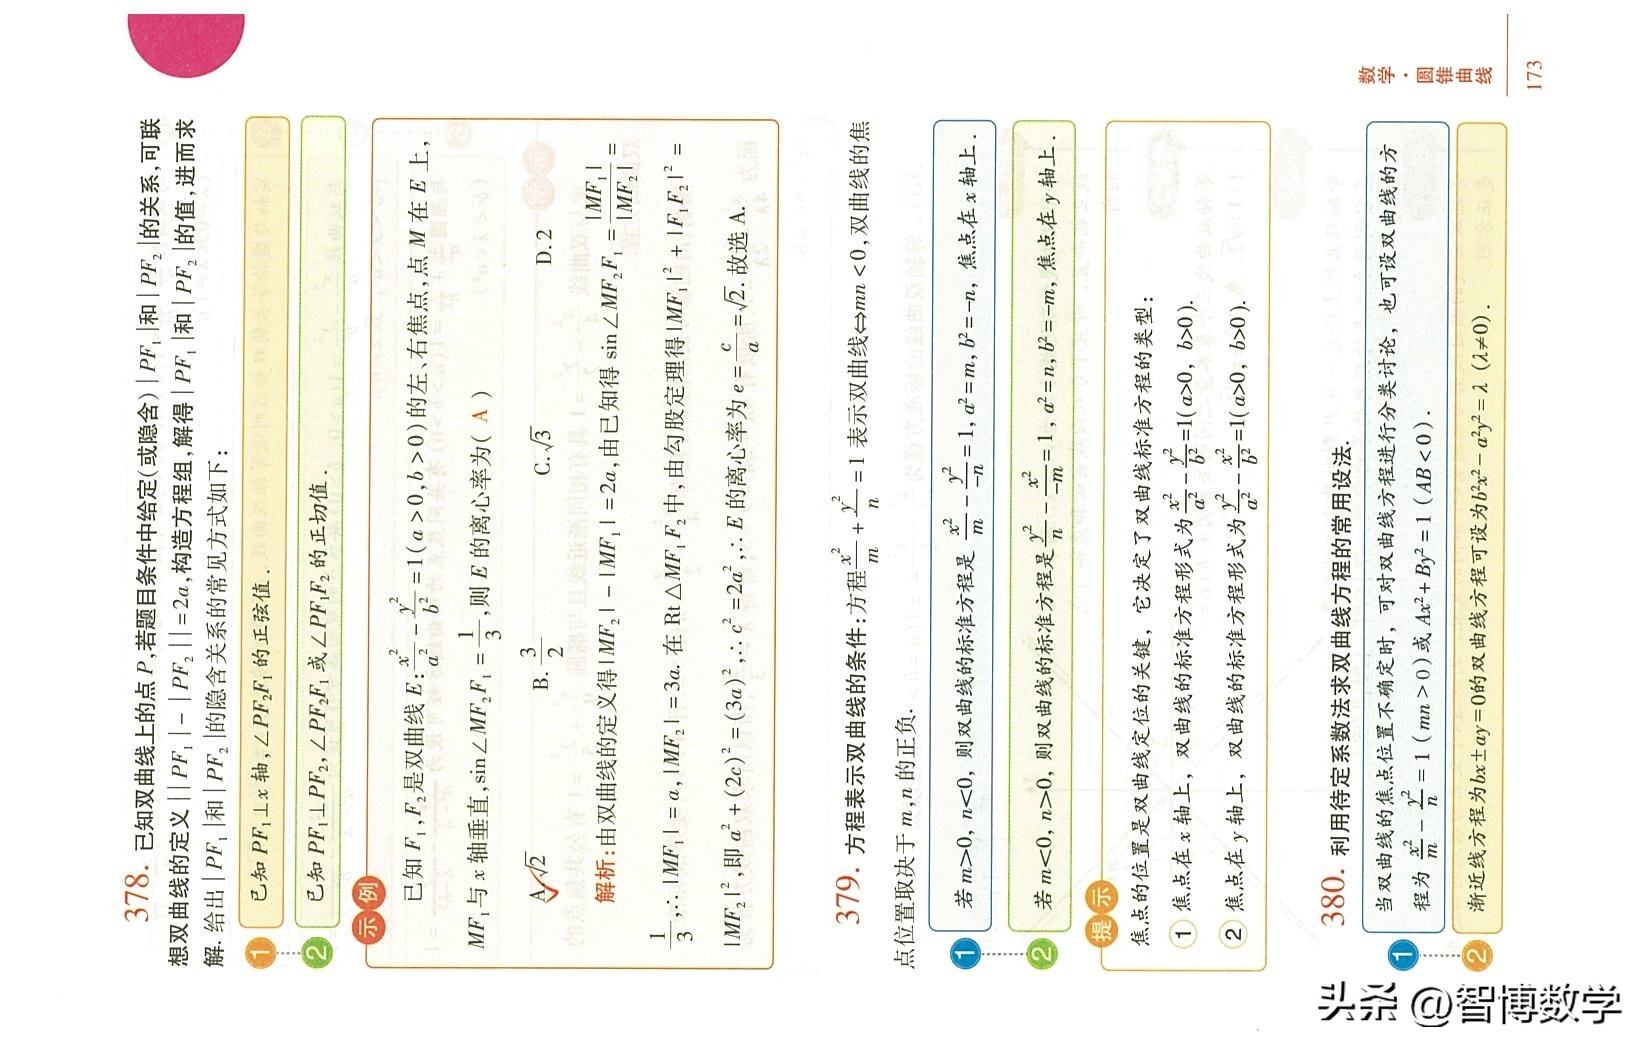 378. 已知双曲线上的点P,若题目条件中给定(或隐含)|PF₁|和|PF₂|的关系,可联
想双曲线的定义||PF₁|-|PF₂||=2a,构造方程组,解得|PF₁|和|PF₂|的值,进而求
解.给出|PF₁|和|PF₂|的隐含关系的常见方式如下:
1 已知PF₁⊥x轴,∠PF₂F₁的正弦值.
2 已知PF₁⊥PF₂,∠PF₂F₁或∠PF₁F₂的正切值.
示例
已知F₁,F₂是双曲线E:x²/a²-y²/b²=1(a>0,b>0)的左、右焦点,点M在E上,
MF₁与x轴垂直,sin∠MF₂F₁=1/3,则E的离心率为( A )
A.√2 B.3/2 C.√3 D.2
解析:由双曲线的定义得|MF₂|-|MF₁|=2a,由已知得sin∠MF₂F₁=|MF₁|/|MF₂|=
1/3,∴|MF₁|=a,|MF₂|=3a.在Rt△MF₁F₂中,由勾股定理得|MF₁|²+|F₁F₂|²=
|MF₂|²,即a²+(2c)²=(3a)²,∴c²=2a²,∴E的离心率为e=c/a=√2.故选A.
379. 方程表示双曲线的条件:方程x²/m+y²/n=1表示双曲线⇔mn<0,双曲线的焦
点位置取决于m,n的正负.
1 若m>0,n<0,则双曲线的标准方程是x²/m-y²/-n=1,a²=m,b²=-n,焦点在x轴上.
2 若m<0,n>0,则双曲线的标准方程是y²/n-x²/-m=1,a²=n,b²=-m,焦点在y轴上.
提示
焦点的位置是双曲线定位的关键,它决定了双曲线标准方程的类型:
1 焦点在x轴上,双曲线的标准方程形式为x²/a²-y²/b²=1(a>0,b>0).
2 焦点在y轴上,双曲线的标准方程形式为y²/a²-x²/b²=1(a>0,b>0).
380. 利用待定系数法求双曲线方程的常用设法.
1 当双曲线的焦点位置不确定时,可对双曲线方程进行分类讨论,也可设双曲线的方
程为x²/m-y²/n=1(mn>0)或Ax²+By²=1(AB<0).
2 渐近线方程为bx±ay=0的双曲线方程可设为b²x²-a²y²=λ(λ≠0).
数学·圆锥曲线
173
头条 @智博数学